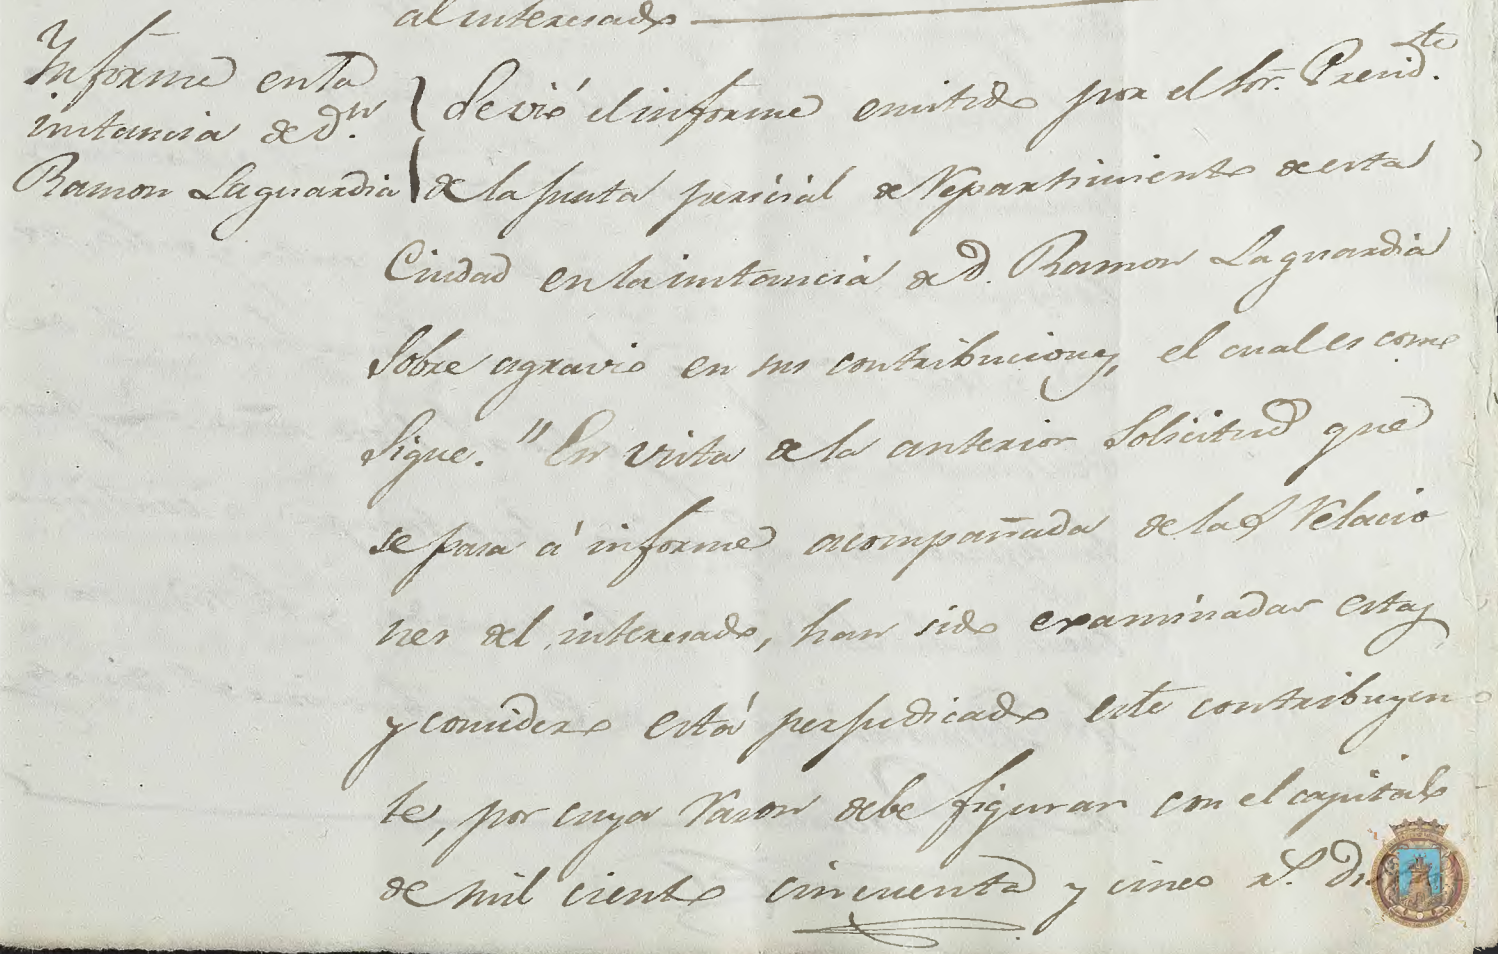 al interesado
Informe en la
instancia de dn.
Ramon Laguardia
Se vió el informe emitido por el Sor. Presidte.
de la Junta pericial de Repartimiento de esta
Ciudad en la instancia de D. Ramon Laguardia
Sobre agravio en sus contribuciones, el cual es como
Sigue. "En vista de la anterior Solicitud que
se pasa á informe acompañada de las Relacio
nes del interesado, han sido examinadas estas
y considero está perjudicado este contribuyen
te, por cuya Razon debe figurar con el capital
de mil ciento cincuenta y cinco rs.